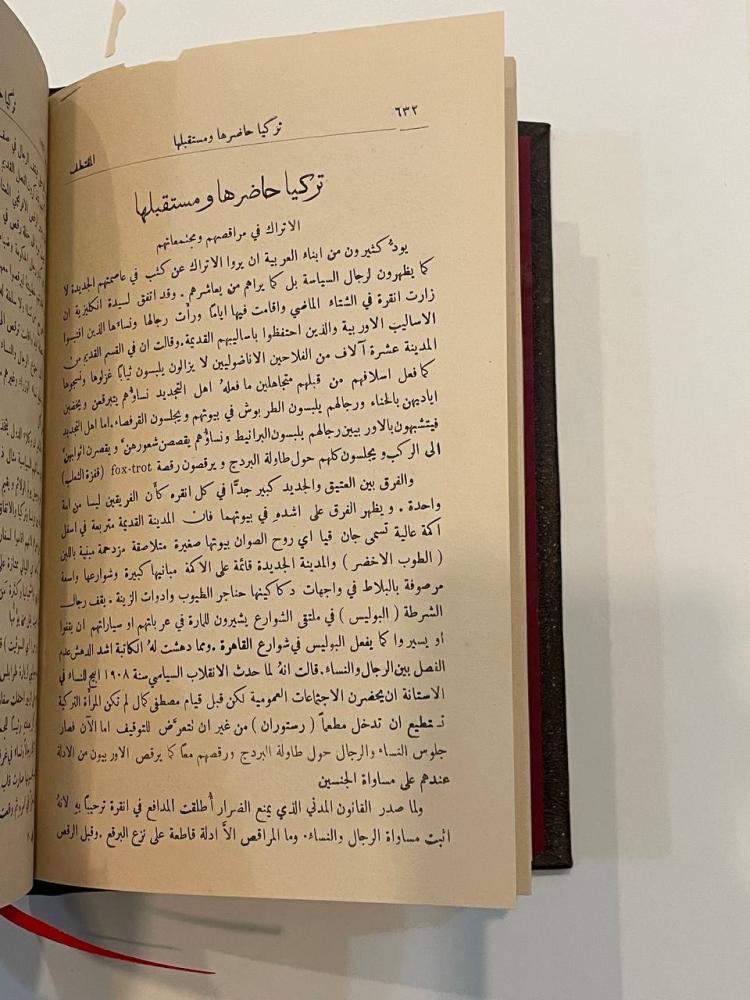 ٦٣٢
تركيا حاضرها ومستقبلها
المقتطف
تركيا حاضرها ومستقبلها
الاتراك في مراقصهم ومجتمعاتهم
يودُّ كثيرون من ابناء العربية ان يروا الاتراك عن كثب في عاصمتهم الجديدة لا
كما يظهرون لرجال السياسة بل كما يراهم من يعاشرهم . وقد اتفق لسيدة انكليزية ان
زارت انقرة في الشتاء الماضي واقامت فيها ايامًا ورأت رجالها ونساءها الذين اقتبسوا
الاساليب الاوربية والذين احتفظوا باساليبهم القديمة . وقالت ان في القسم القديم من
المدينة عشرة آلاف من الفلاحين الاناضوليين لا يزالون يلبسون ثيابًا غزلوها ونسجوها
كما فعل اسلافهم من قبلهم متجاهلين ما فعلهُ اهل التجديد نساؤهم يتبرقعن ويخضبن
اياديهن بالحناء ورجالهم يلبسون الطربوش في بيوتهم ويجلسون القرفصاء . اما اهل التجديد
فيتشبهون بالاوربيين رجالهم يلبسون البرانيط ونساؤهم يقصصن شعورهنَّ ويقصرن اثوابهنَّ
الى الركب ويجلسون كلهم حول طاولة البردج ويرقصون رقصة fox-trot (قفزة الثعلب)
والفرق بين العتيق والجديد كبير جدًّا في كل انقره كأن الفريقين ليسا من امة
واحدة . ويظهر الفرق على اشده في بيوتهما فان المدينة القديمة متربعة في اسفل
اكمة عالية تسمى جان قيا اي روح الصوان بيوتها صغيرة متلاصقة مزدحمة مبنية باللبن
( الطوب الاخضر ) والمدينة الجديدة قائمة على الاكمة مبانيها كبيرة وشوارعها واسعة
مرصوفة بالبلاط في واجهات دكاكينها حناجر الطيوب وادوات الزينة . يقف رجال
الشرطة ( البوليس ) في ملتقى الشوارع يشيرون للمارة في عرباتهم او سياراتهم ان يقفوا
او يسيروا كما يفعل البوليس في شوارع القاهرة . ومما دهشت لهُ الكاتبة اشد الدهش عدم
الفصل بين الرجال والنساء . قالت انهُ لما حدث الانقلاب السياسي سنة ١٩٠٨ ابيح للنساء في
الاستانة ان يحضرن الاجتماعات العمومية لكن قبل قيام مصطفى كمال لم تكن المرأة التركية
تستطيع ان تدخل مطعماً ( رستوران ) من غير ان تتعرَّض للتوقيف اما الآن فصار
جلوس النساء والرجال حول طاولة البردج ورقصهم معًا كما يرقص الاوربيون من الادلة
عندهم على مساواة الجنسين
ولما صدر القانون المدني الذي يمنع الضرار أُطلقت المدافع في انقرة ترحيبًا به لانهُ
اثبت مساواة الرجال والنساء . وما المراقص الاَّ ادلة قاطعة على نزع البرقع . وقبل الرقص